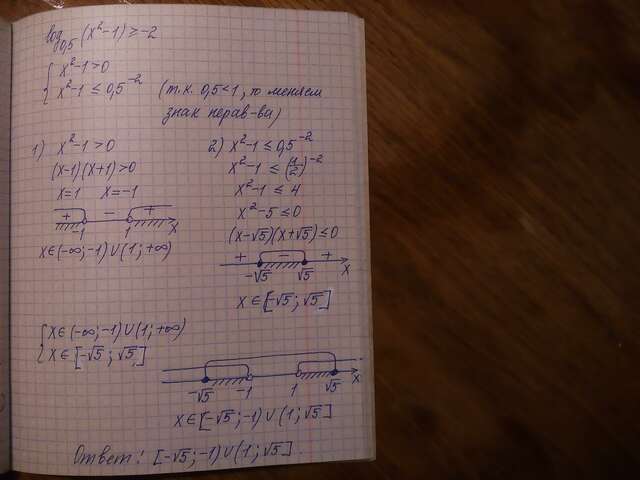 log₀,₅(x²-1) ≥ -2
{ x²-1>0
x²-1 ≤ 0,5⁻² (т.к. 0,5<1, то меняем
знак нерав-ва)
1) x²-1>0
(x-1)(x+1)>0
x=1 x=-1
+ - +
-1 1 x
x∈(-∞;-1)∪(1;+∞)
2) x²-1 ≤ 0,5⁻²
x²-1 ≤ (1/2)⁻²
x²-1 ≤ 4
x²-5 ≤ 0
(x-√5)(x+√5) ≤ 0
+ - +
-√5 √5 x
x∈[-√5;√5]
{ x∈(-∞;-1)∪(1;+∞)
x∈[-√5;√5]
-√5 -1 1 √5 x
x∈[-√5;-1)∪(1;√5]
Ответ: [-√5;-1)∪(1;√5].